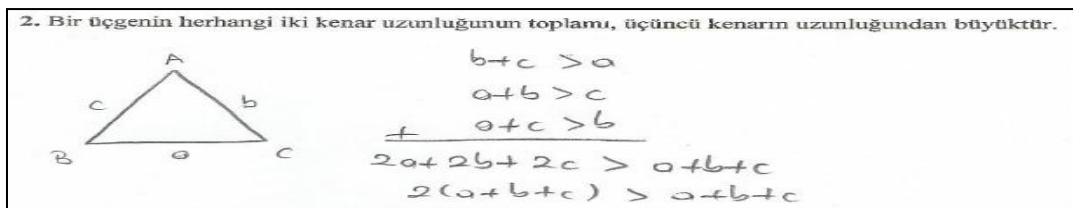 2. Bir üçgenin herhangi iki kenar uzunluğunun toplamı, üçüncü kenarın uzunluğundan büyüktür.
A
c
b
B
a
C
b+c >a
a+b >c
+ a+c >b
2a+2b+2c > a+b+c
2(a+b+c) > a+b+c